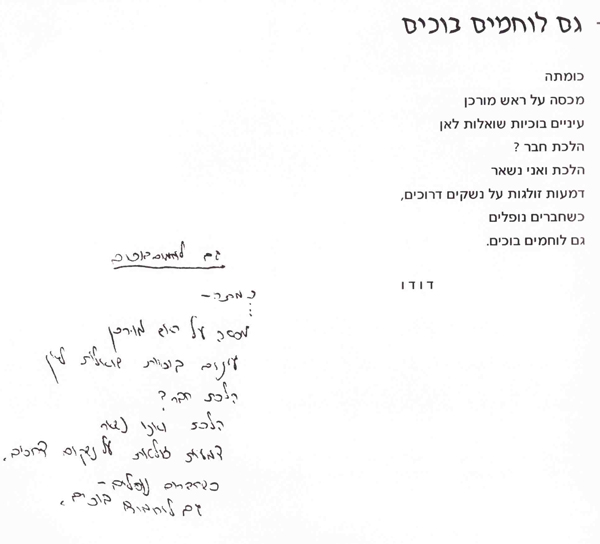 גם לוחמים בוכים
כומתה
מכסה על ראש מורכן
עיניים בוכיות שואלות לאן
הלכת חבר ?
הלכת ואני נשאר
דמעות זולגות על נשקים דרוכים,
כשחברים נופלים
גם לוחמים בוכים.
דודו
גם לוחמים בוכים
כומתה –
מכסה על ראש מורכן
עינים בוכיות שואלות לאן
הלכת חבר ?
הלכת ואני נשאר
דמעות זולגות על נשקים דרוכים,
כשחברים נופלים –
גם לוחמים בוכים.